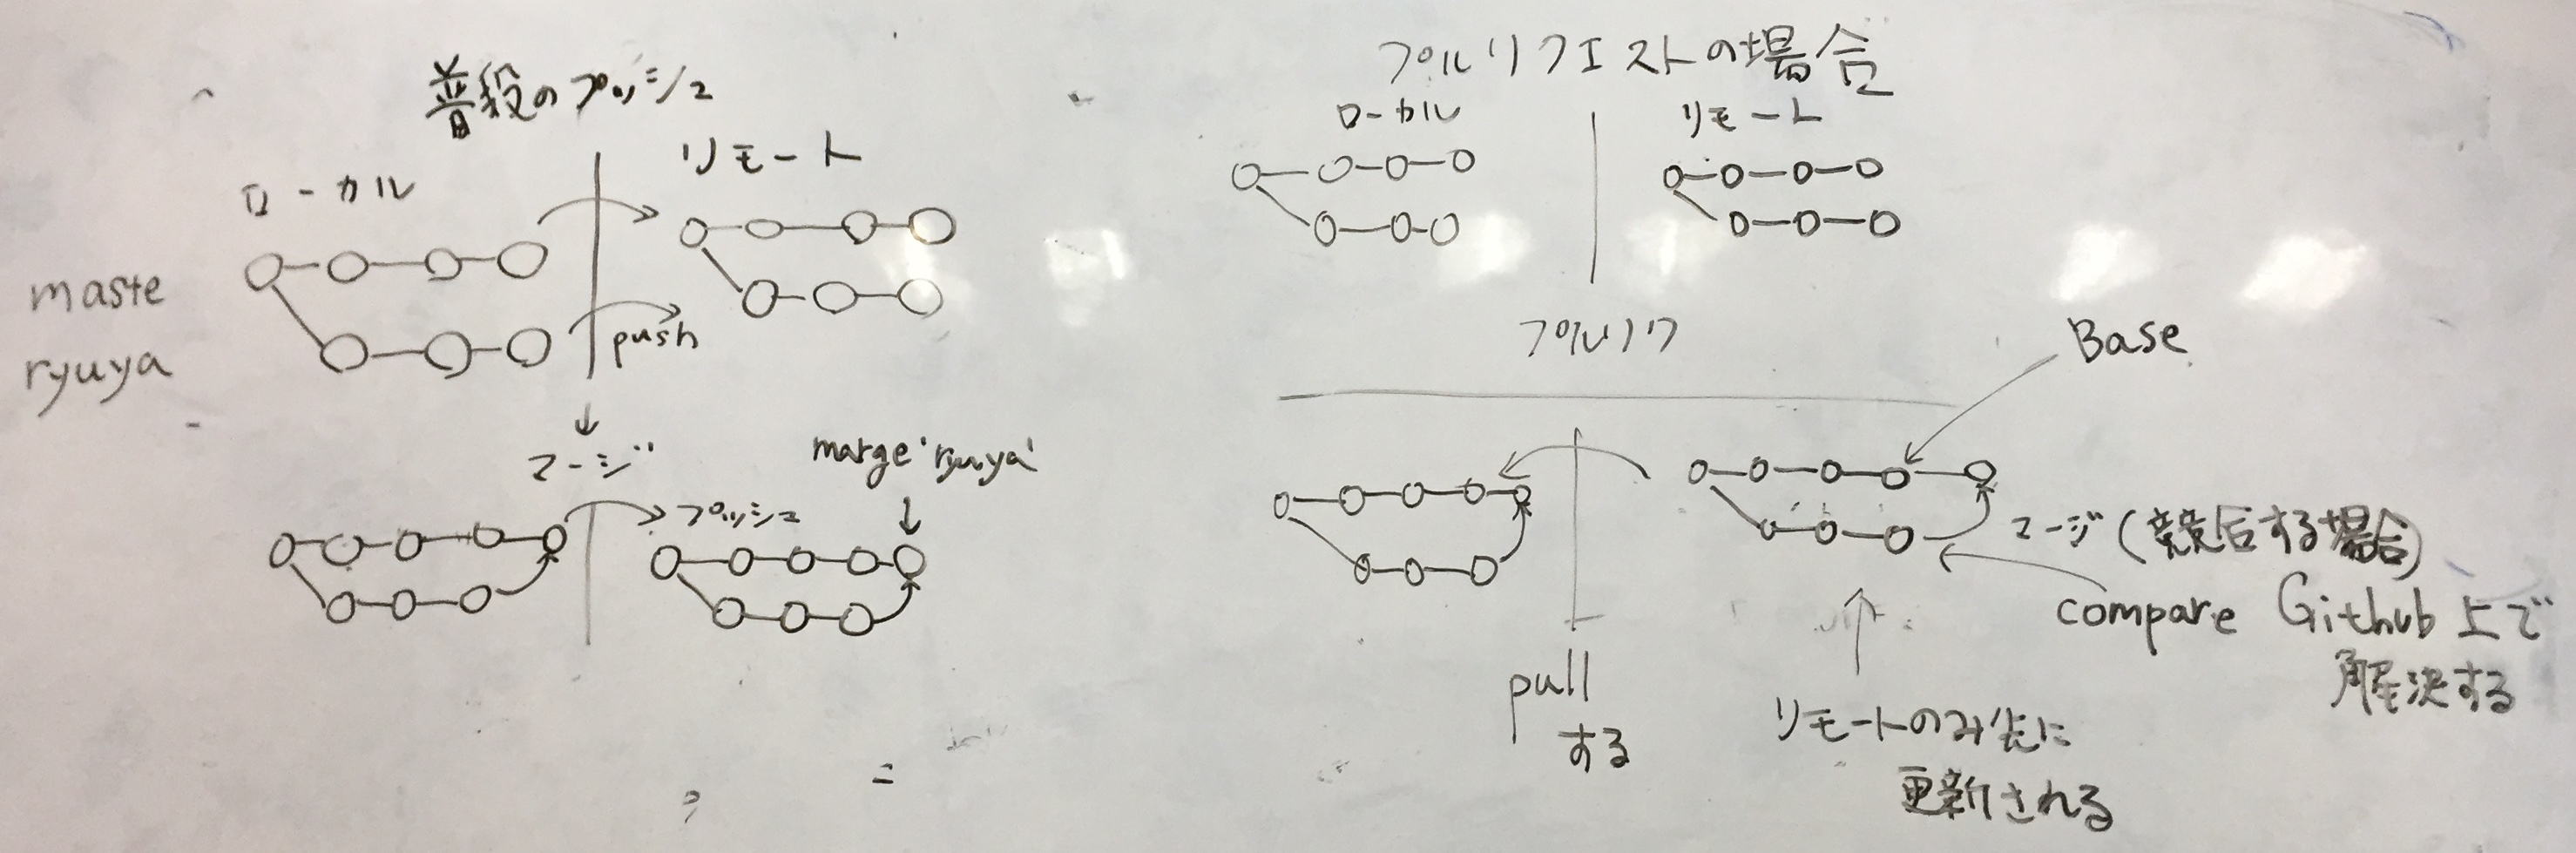 普段のプッシュ
ローカル
リモート
maste
ryuya
push
マージ
marge 'ryuya'
プッシュ
プルリクエストの場合
ローカル
リモート
プルリク
Base
マージ(競合する場合)
compare
Github上で
解決する
pull
する
リモートのみ先に
更新される